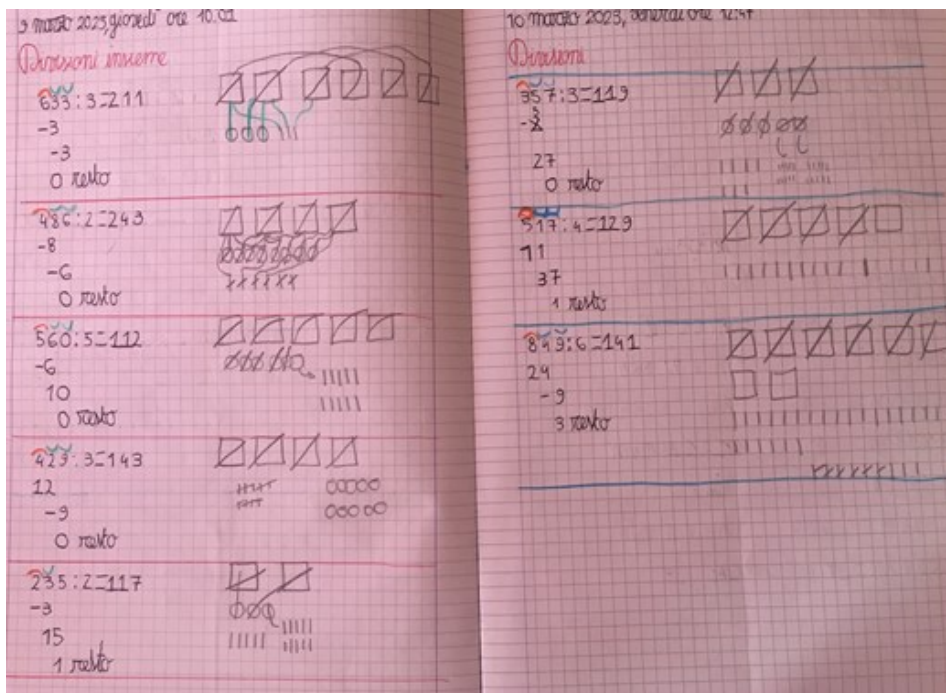 9 marzo 2023, giovedì ore 10.02
Divisioni insieme
633:3=211
-3
-3
0 resto
486:2=243
-8
-6
0 resto
560:5=112
-6
10
0 resto
429:3=143
12
-9
0 resto
235:2=117
-3
15
1 resto
10 marzo 2023, venerdì ore 12:47
Divisioni
357:3=119
27
0 resto
517:4=129
11
37
1 resto
849:6=141
24
-9
3 resto